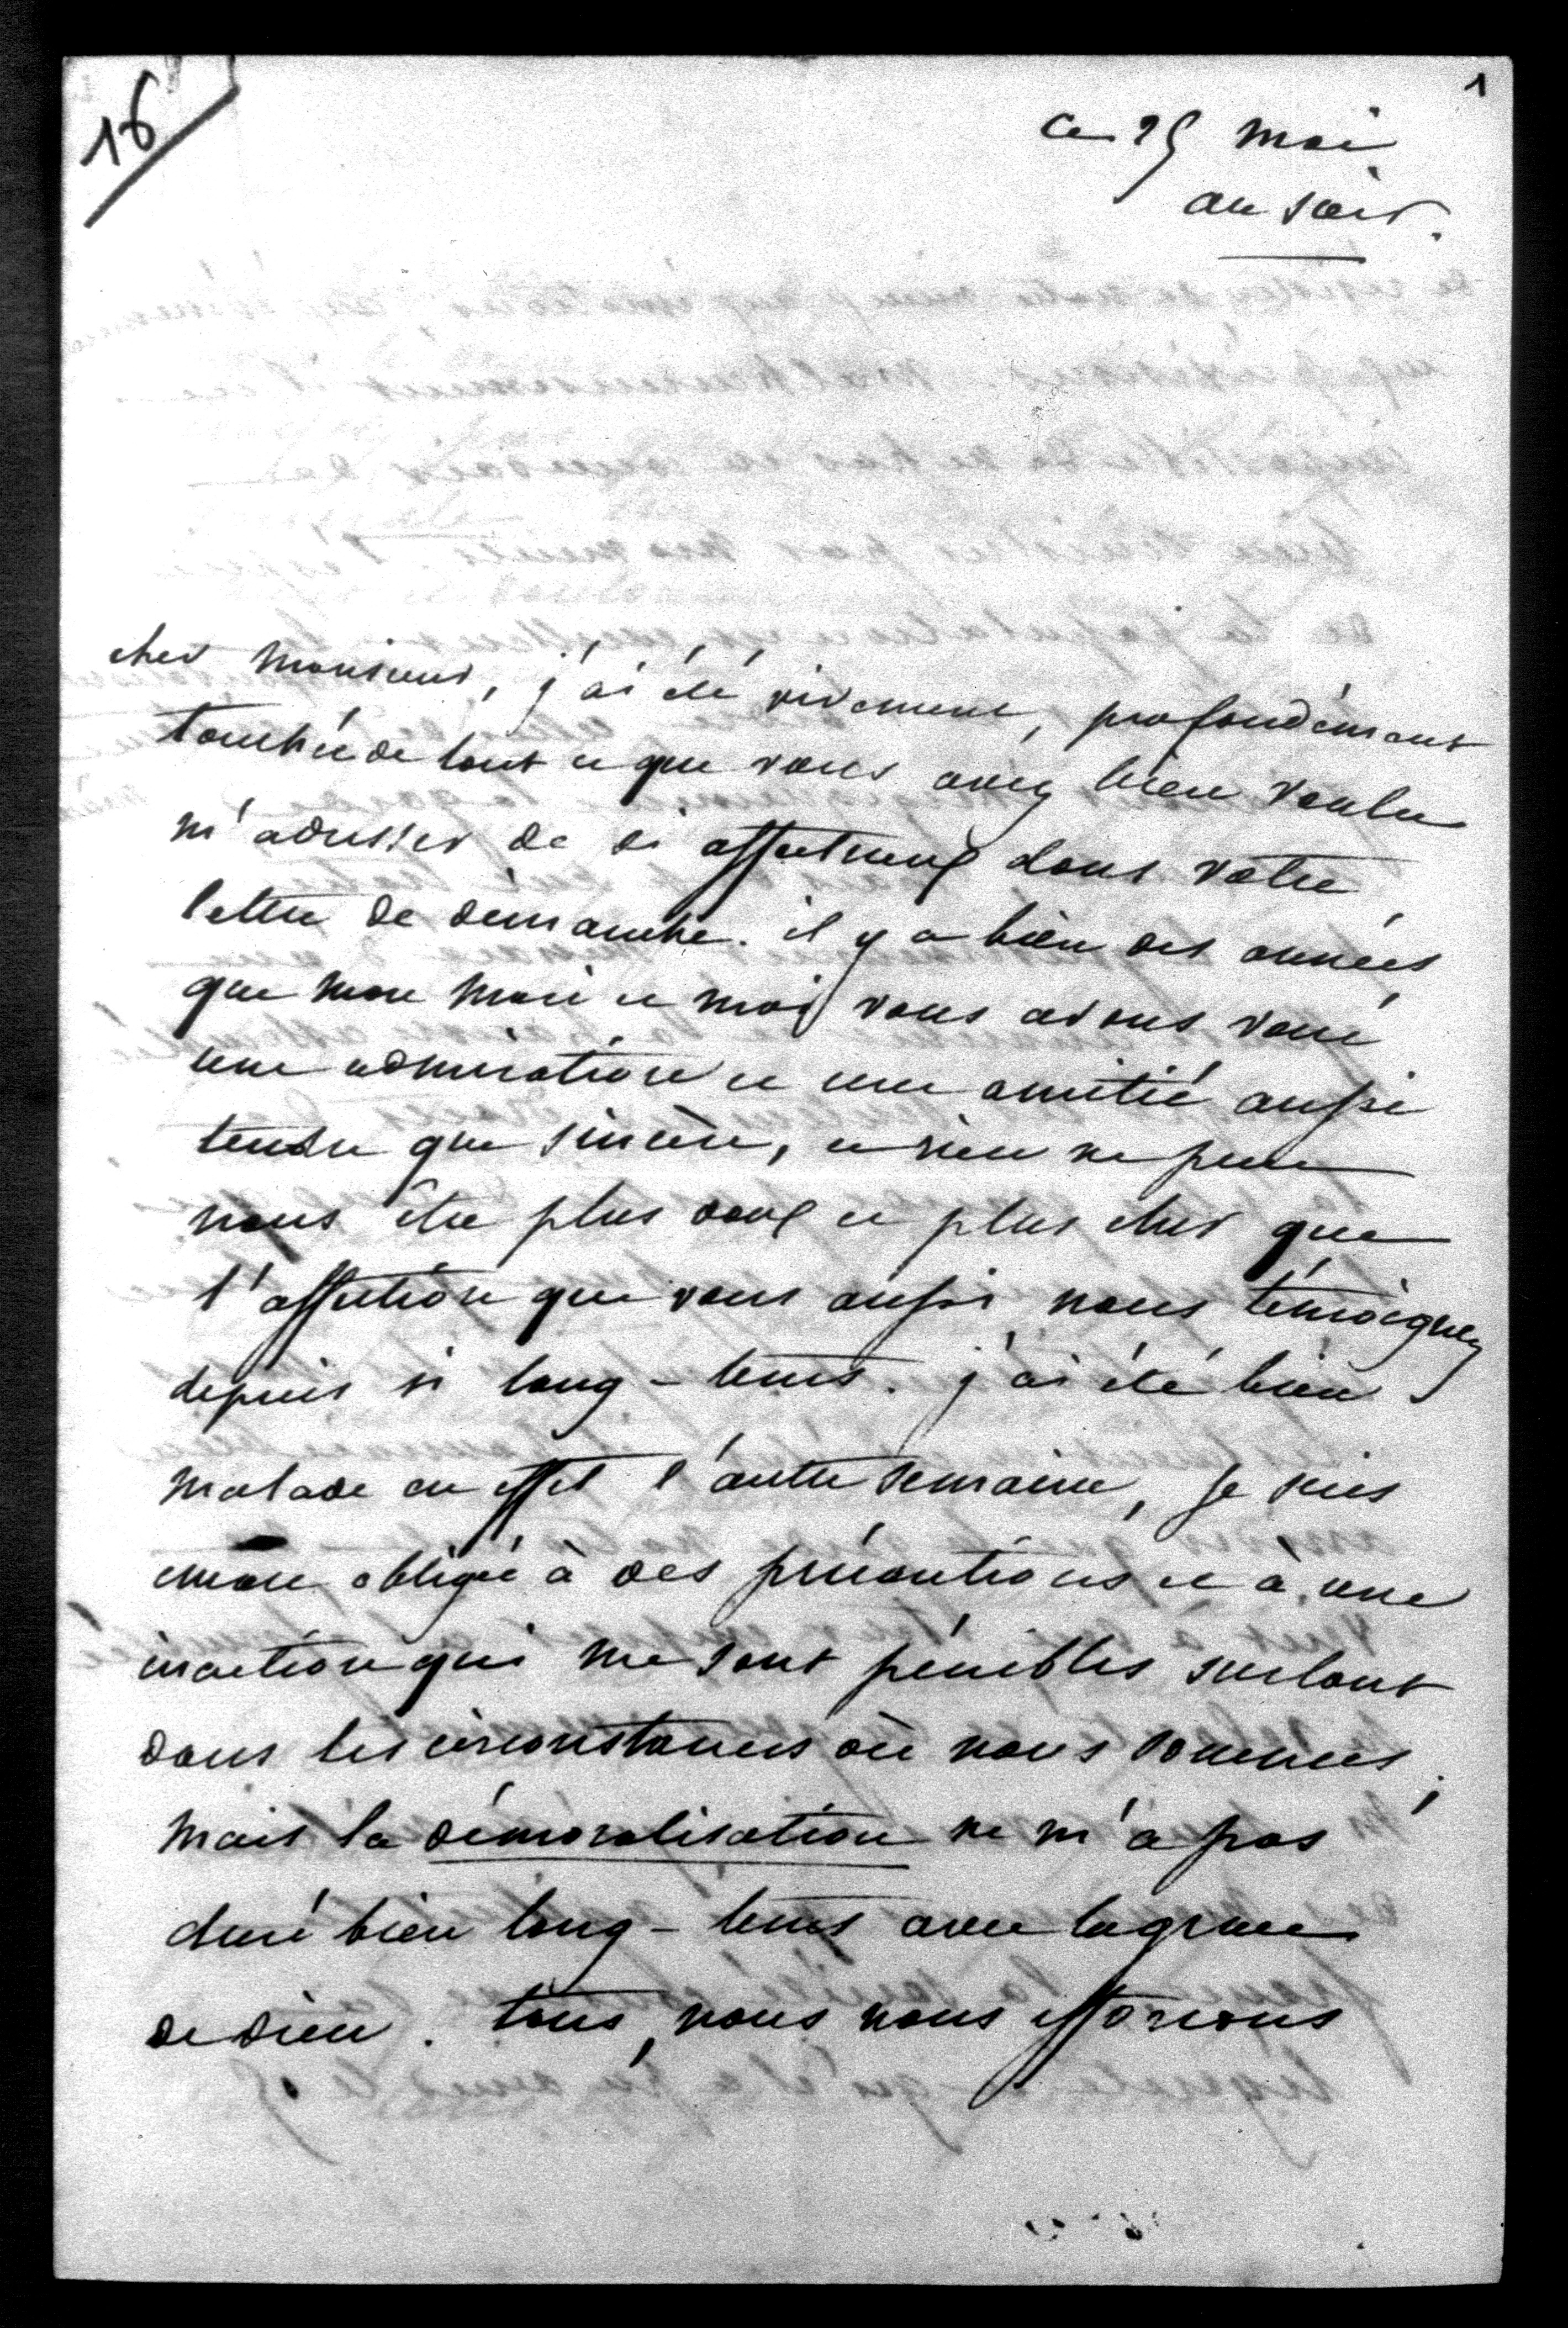 16
1
ce 25 mai
au soir.
cher monsieur, j'ai été vivement, profondément
touchée de tout ce que vous avez bien voulu
m'adresser de si affectueux dans votre
lettre de dimanche. il y a bien des années
que mon mari et moi vous avons voué
une admiration et une amitié aussi
tendre que sincère, et rien ne peut
nous être plus doux et plus cher que
l'affection que vous aussi nous témoignez
depuis si long-tems. j'ai été bien
malade en effet l'autre semaine, je suis
encore obligée à des précautions et à une
inaction qui me sont pénibles surtout
dans les circonstances où nous sommes ;
mais la démoralisation ne m'a pas
duré bien long-tems avec la grace
de dieu. tous, nous nous efforcons